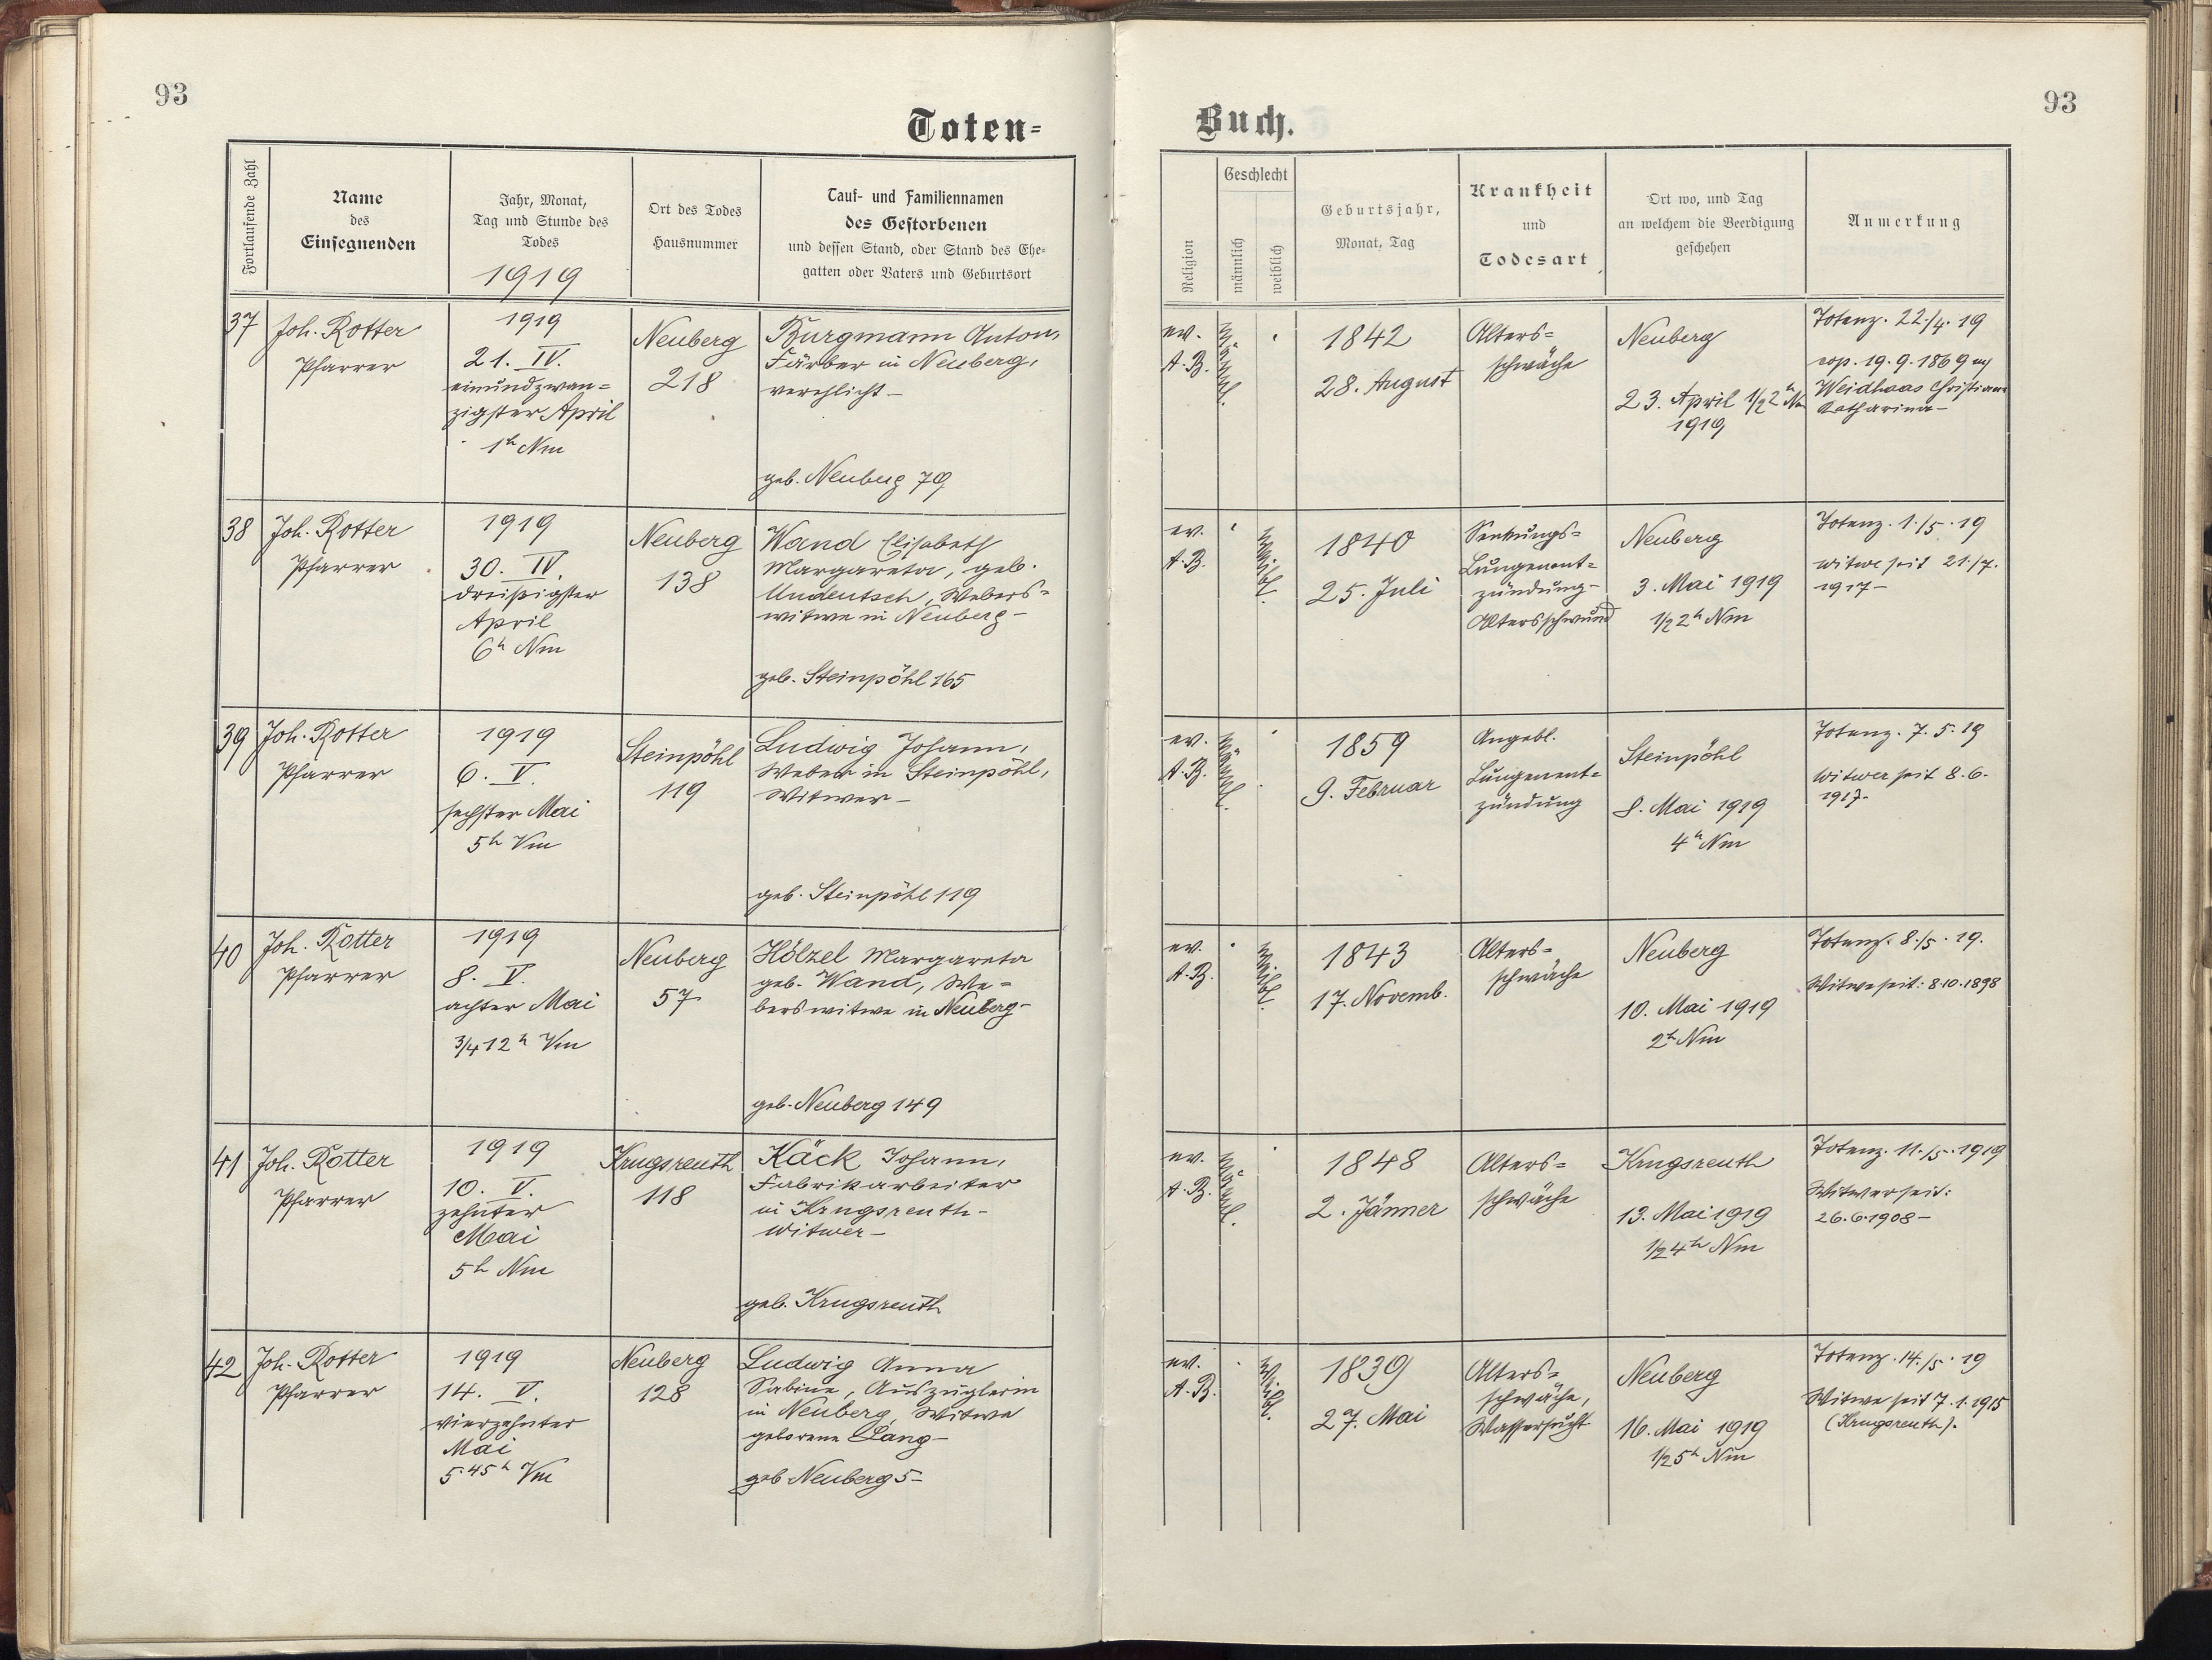 93
Toten-
Fortlaufende Zahl
Name
des
Einsegnenden
Jahr, Monat,
Tag und Stunde des
Todes
1919
Ort des Todes
Hausnummer
Tauf- und Familiennamen
des Gestorbenen
und dessen Stand, oder Stand des Ehe-
gatten oder Vaters und Geburtsort
37
Joh. Rotter
Pfarrer
1919
21. IV.
einundzwan-
zigster April
1h Nm
Neuberg
218
Burgmann Anton,
Färber in Neuberg,
verehlicht-
geb. Neuberg 79
38
Joh. Rotter
Pfarrer
1919
30. IV.
dreißigster
April
6h Nm
Neuberg
138
Wand Elisabeth
Margareta, geb.
Undeutsch, Webers-
witwe in Neuberg-
geb. Steinpöhl 165
39
Joh. Rotter
Pfarrer
1919
6. V.
sechster Mai
5h Vm
Steinpöhl
119
Ludwig Johann,
Weber in Steinpöhl,
Witwer-
geb. Steinpöhl 119
40
Joh. Rotter
Pfarrer
1919
8. V.
achter Mai
3/4 12h Vm
Neuberg
57
Hölzel Margareta
geb. Wand, We-
berswitwe in Neuberg-
geb. Neuberg 149
41
Joh. Rotter
Pfarrer
1919
10. V.
zehnter
Mai
5h Nm
Krugsreuth
118
Käck Johann,
Fabrikarbeiter
in Krugsreuth-
Witwer-
geb. Krugsreuth
42
Joh. Rotter
Pfarrer
1919
14. V.
vierzehnter
Mai
5.45h Vm
Neuberg
128
Ludwig Anna
Sabine, Auszüglerin
in Neuberg, Witwe
geborene Lang-
geb Neuberg 5-
93
Buch.
Religion
Geschlecht
männlich
weiblich
Geburtsjahr,
Monat, Tag
Krankheit
und
Todesart
Ort wo, und Tag
an welchem die Beerdigung
geschehen
Anmerkung
ev.
A.B.
männl.
1842
28. August
Alters-
schwäche
Neuberg
23. April 1/2 2h Nm
1919
Totenz. 22./4. 19
cop. 19.9.1869
Weidhaas Christiane
Katharina-
ev.
A.B.
weibl.
1840
25. Juli
Senkungs-
Lungenent-
zündung-
Altersschwund
Neuberg
3. Mai 1919
1/2 2h Nm
Totenz. 1./5. 19
witwe seit 21./7.
1917-
ev.
A.B.
männl.
1859
9. Februar
Angebl.
Lungenent-
zündung
Steinpöhl
8. Mai 1919
4h Nm
Totenz. 7. 5. 19
Witwer seit 8.6.
1917-
ev.
A.B.
weibl.
1843
17. Novemb.
Alters-
schwäche
Neuberg
10. Mai 1919
2h Nm
Totenz. 8./5. 19.
Witwe seit: 8.10.1898
ev.
A.B.
männl.
1848
2. Jänner
Alters-
schwäche
Krugsreuth
13. Mai 1919
1/2 4h Nm
Totenz. 11./5. 1919
Witwer seit:
26.6.1908-
ev.
A.B.
weibl.
1839
27. Mai
Alters-
schwäche,
Wassersucht
Neuberg
16. Mai 1919
1/2 5h Nm
Totenz. 14./5. 19
Witwe seit 7.1.1915
(Krugsreuth).